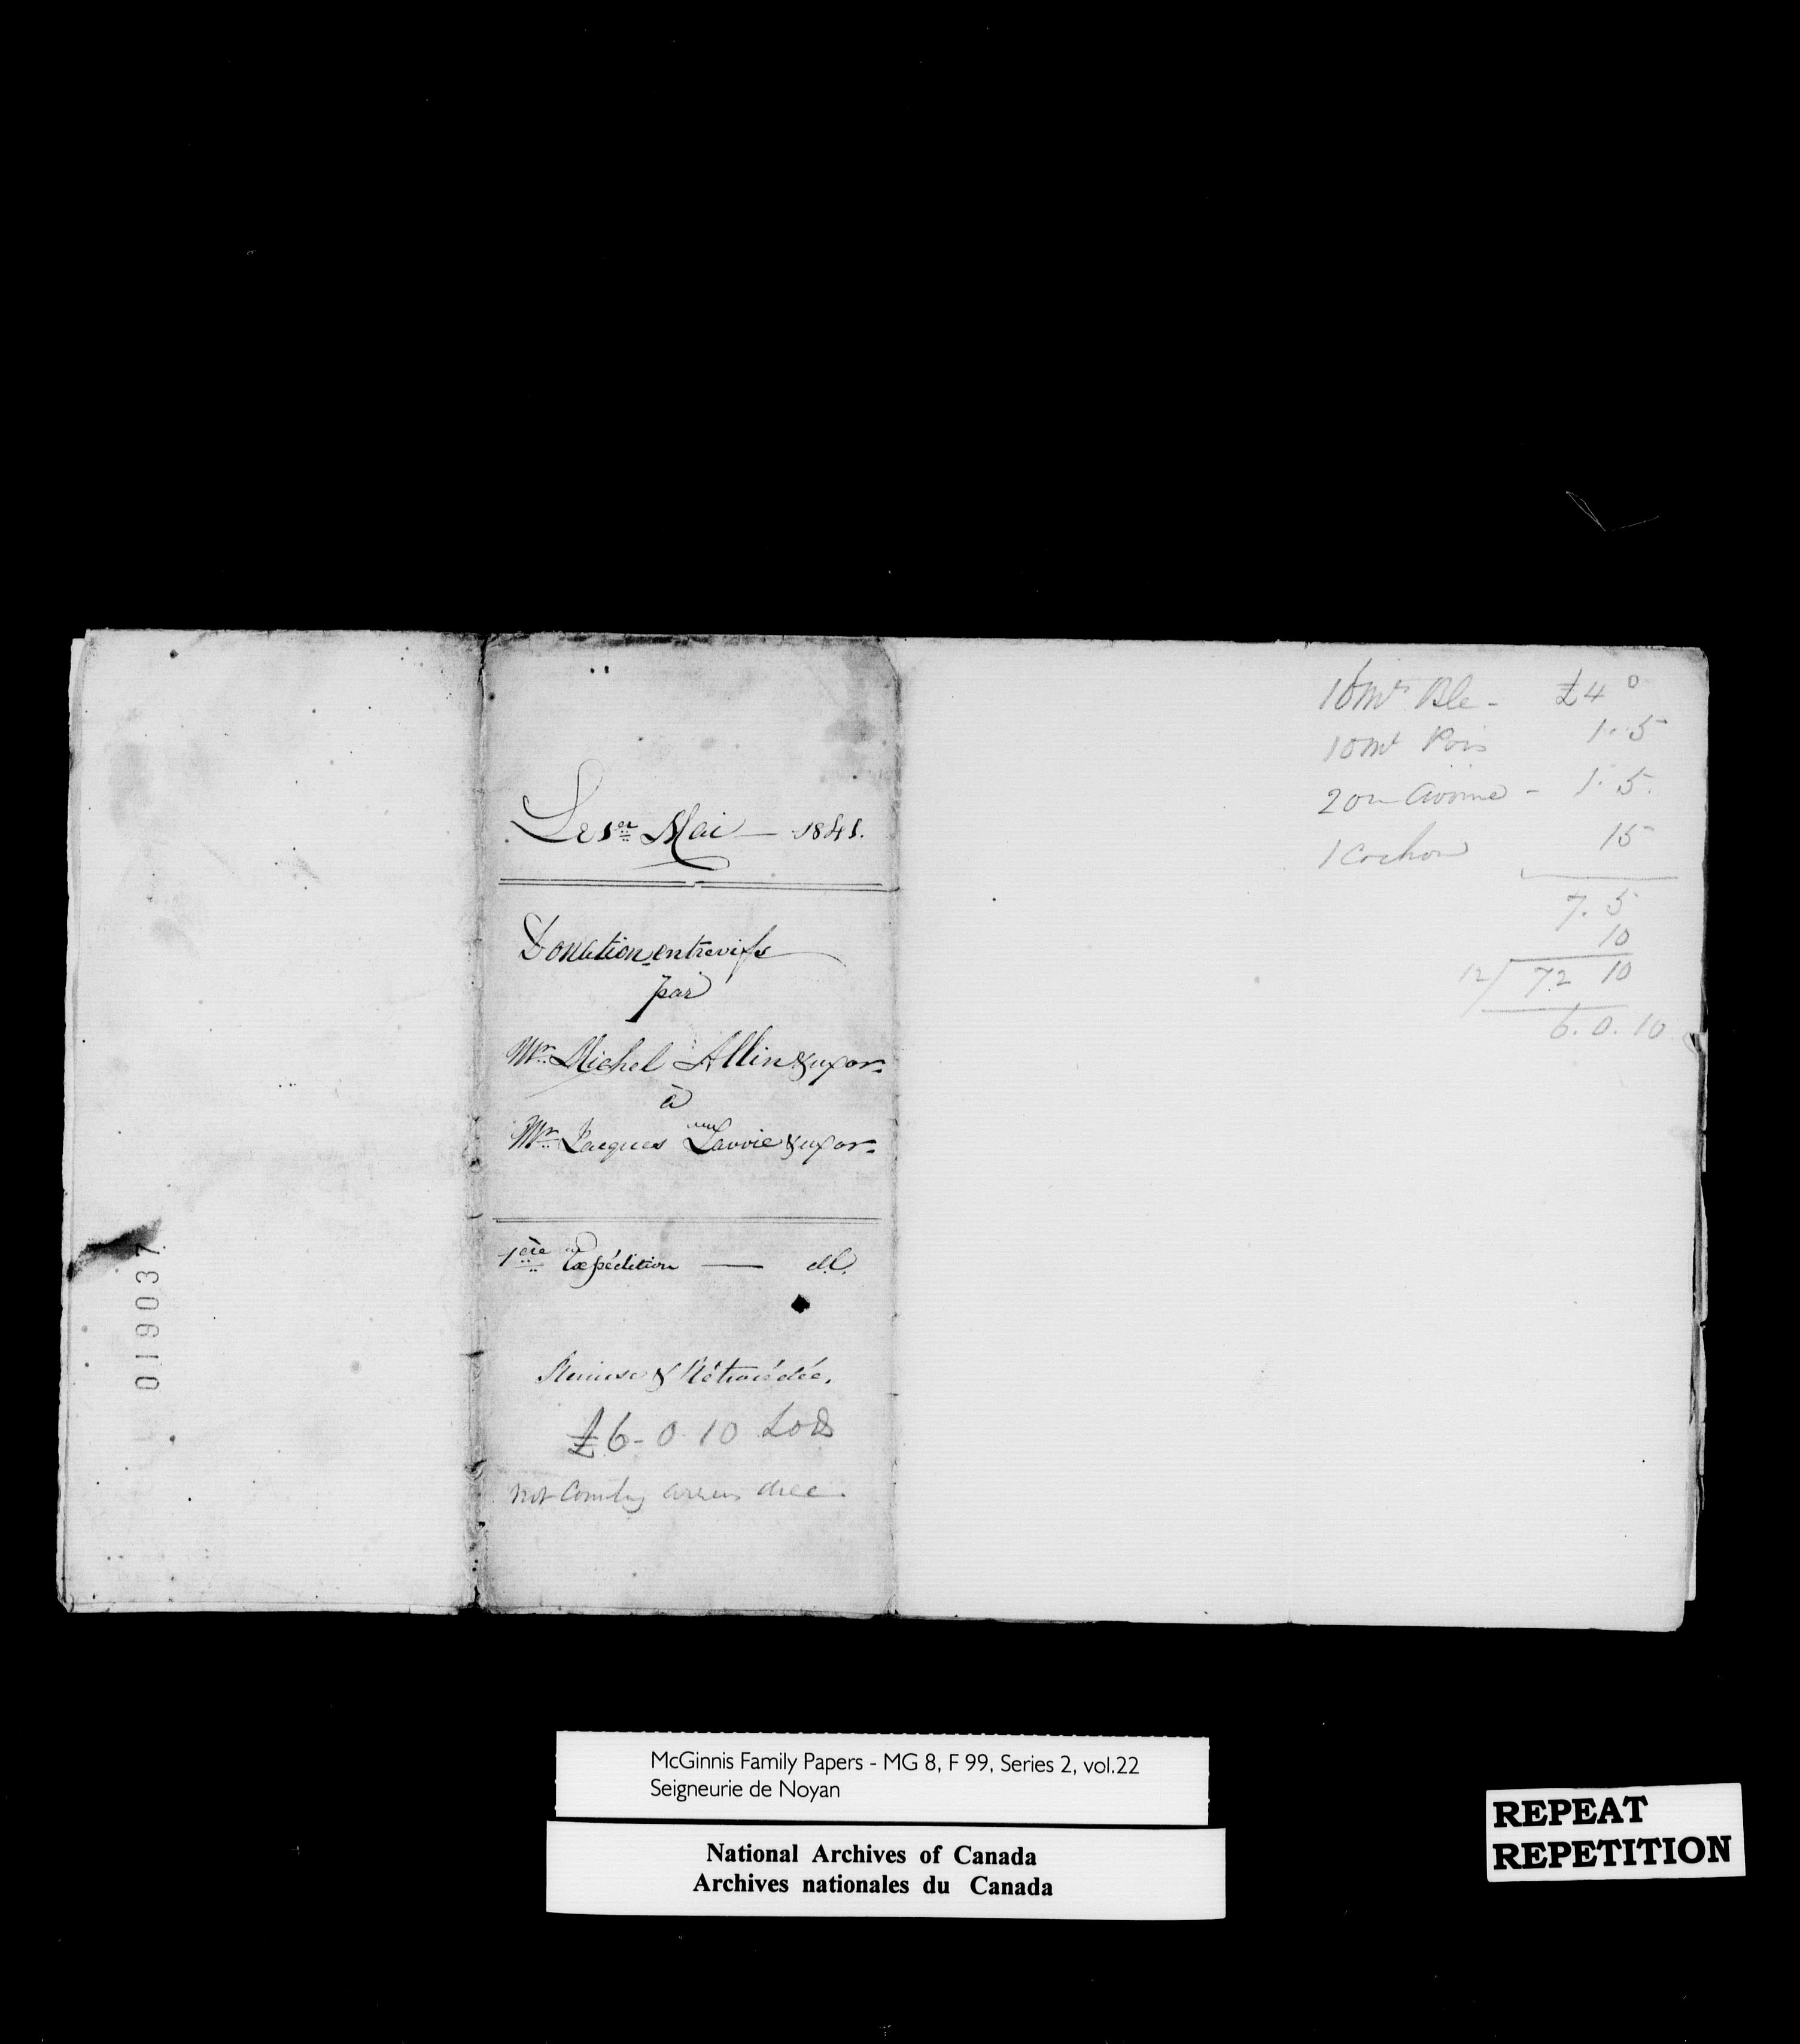 Le 1er Mai — 1841.
Donation entrevifs
par
Mr. Michel Allin & uxor
à
Mr. Jacques Lavoie & uxor
1ère Expédition —
Remise & Rétrocédée.
£6-0 10 Lods
not
16 Mts Ble - £4 0
10 Mt Pois 1..5
20 m Avoine - 1.5.
1 Cochon 15
7.5
10
12/ 72 10
6.0.10
019037
McGinnis Family Papers - MG 8, F 99, Series 2, vol.22
Seigneurie de Noyan
National Archives of Canada
Archives nationales du Canada
REPEAT
REPETITION